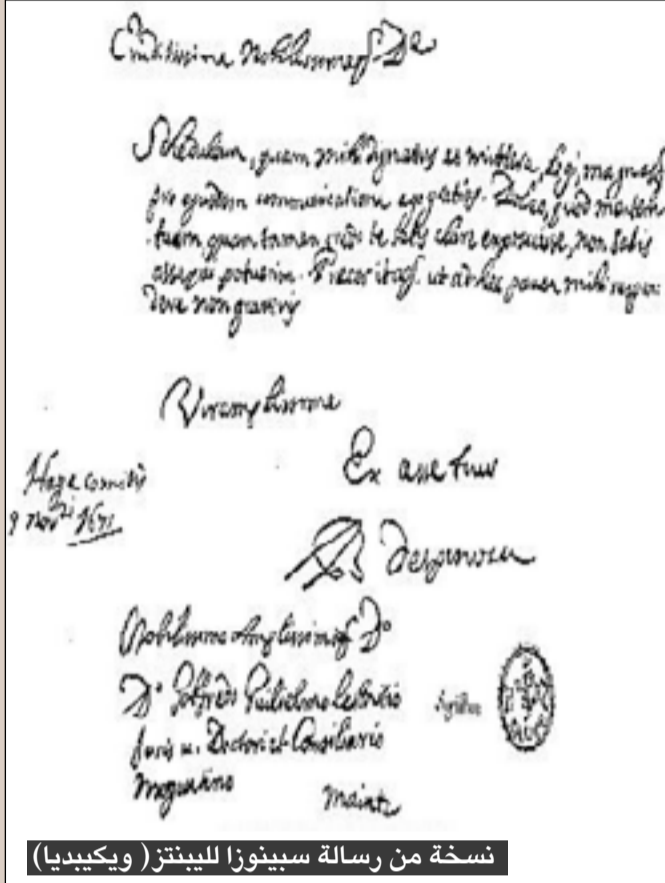 nobilissimeq Dne
Schedulam, quam mihi dignatus es mittere, legi, magnasq
pro ejusdem communicatione ago gratias. Doleo, quod mentem
tuam quam tamen credo te satis clare exposuisse, non satis
assequi potuerim. Precor itaq ut ad haec pauca mihi respon
dere non graveris
Vir amplissime
Ex asse tuus
Hagae comitis
9 novbri 1671
B despinoza
D° Gotfredo Guilielmo Leibnitio
Juris u. Doctori et Consiliario
Moguntino
Maintz
نسخة من رسالة سبينوزا لليبنتز( ويكيبديا)